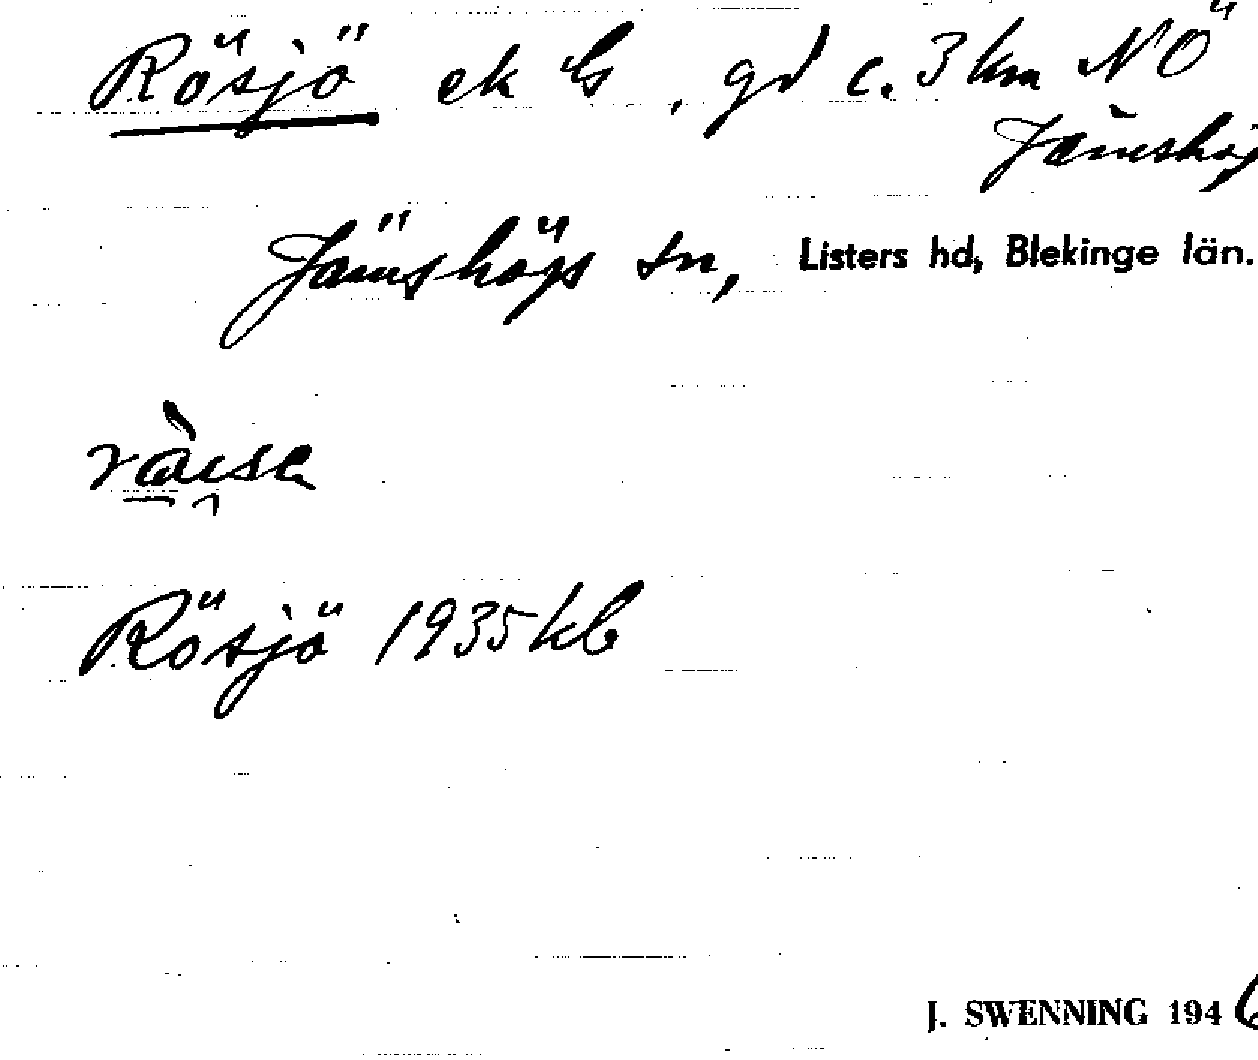 Rösjö ek G, gd c. 3 km NÖ
Jämshög
Jämshögs sn, Listers hd, Blekinge län.
Rösjö 1935 kb
J. SWENNING 1946